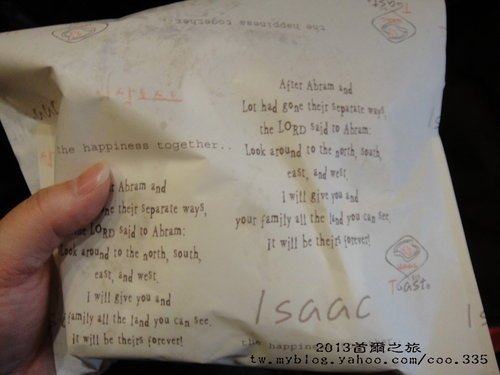 the happiness together..
Toast.
the happiness together..
After Abram and
Lot had gone their separate ways,
the LORD said to Abram:
Look around to the north, south,
east, and west.
I will give you and
your family all the land you can see.
It will be theirs forever!
Abram and
gone their separate ways,
the LORD said to Abram:
Look around to the north, south,
east, and west.
I will give you and
family all the land you can see.
It will be theirs forever!
Toast.
Isaac
the happiness
2013首爾之旅
tw.myblog.yahoo.com/coo.335